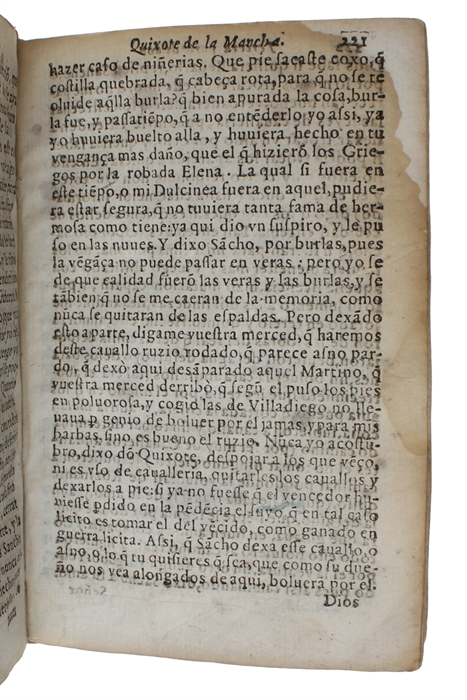 Quixote de la Mancha. 221
hazer caso de niñerias. Que pie sacaste coxo, q̃
costilla quebrada, q̃ cabeça rota, para q̃ no se te
oluide aq̃lla burla? q̃ bien apurada la cosa, bur-
la fue, y passatiẽpo, q̃ a no entẽderlo yo assi, ya
yo huuiera buelto alla, y huuiera hecho en tu
vengança mas daño, que el q̃ hizierõ los Grie-
gos por la robada Elena. La qual si fuera en
este tiẽpo, o mi Dulcinea fuera en aquel, pudie-
ra estar segura, q̃ no tuuiera tanta fama de her-
mosa como tiene: ya qui dio vn suspiro, y le pu
so en las nuues. Y dixo Sãcho, por burlas, pues
la vẽgãça no puede passar en veras: pero yo se
de que calidad fuerõ las veras y las burlas, y se
tãbien q̃ no se me caeran de la memoria, como
nũca se quitaran de las espaldas. Pero dexãdo
esto a parte, digame vuestra merced, q̃ haremos
deste cauallo ruzio rodado, q̃ parece asno par-
do, q̃ dexò aqui desãparado aquel Martino, q̃
vuestra merced derribò, q̃ segũ el puso los pies
en poluorosa, y cogio las de Villadiego no lle-
uaua p genio de boluer por el jamas, y para mis
barbas, sino es bueno el ruzio. Nũca yo acostũ-
bro, dixo dõ Quixote, despojar a los que vẽço,
ni es vso de caualleria, quitarles los cauallos y
dexarlos a pie: si ya no fuesse q̃ el vencedor hu-
uiesse pdido en la pẽdẽcia el suyo, q̃ en tal caso
licito es tomar el del vẽcido, como ganado en
guerra licita. Assi, q̃ Sancho dexa esse cauallo, o
asno, o lo q̃ tu quisieres q̃ sea, que como su due-
ño nos vea alongados de aqui, boluera por el.
Dios